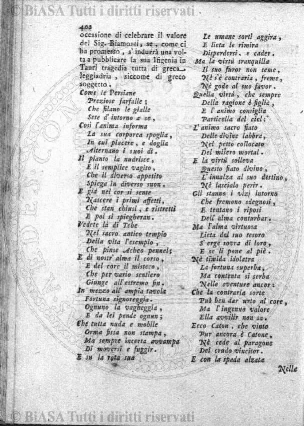 402
occasione di celebrare il valore
del Sig. Biamonti, se, come ci
ha promesso, s'indurrà una vol-
ta a pubblicare la sua Ifigenia in
Tauri tragedia tutta di greca
leggiadria, siccome di greco
soggetto.
Come le Persiane
Preziose farfalle;
Che filano le gialle
Sete d'intorno a se.
Così l'anima informa
La sua corporea spoglia,
In cui piacere, e doglia
Alternano i suoi dì.
Il pianto la nudrisce,
E il semplice vagito,
Che il diverso appetito
Spiega in diverso suon.
E già nel cor si sente
Nascere i primi affetti,
Che stan chiusi, e ristretti
E poi si spiegheran.
Vedete là di Tebe
Nel sacro antico tempio
Della vita l'esempio,
Che pinse Acheo pennel;
E di nostr'almo il corso,
E del cor il mistero,
Che per vario sentiero
Giunge all'estremo fin.
In mezzo all'ampia tavola
Fortuna signoreggia,
Ognuno la vagheggia,
E da lei pende ognun;
Che tutta nuda e mobile
Orma fissa non stampa,
Ma sempre incerta avvampa
Di muoversi e fuggir.
E in la rota sua
Le umane sorti aggira,
E lieta le rimira
Disperdersi, e cader.
Ma la virtù tranquilla
Il suo furor non teme,
Nè s'è contraria, freme,
Nè gode al suo favor.
Quella virtù, che sempre
Della ragione è figlia,
E l'animo consiglia
Particella del ciel;
L'animo sacro fiato
Delle divine labbra,
Nel petto collocato
Del misero mortal.
E la virtù solleva
Questo fiato divino,
L'innalza al suo destino,
Nè lascialo perir.
Gli stanno i vizj intorno
Che fremono sdegnosi,
E tentano i riposi
Dell'alma conturbar.
Ma l'alma virtuosa
Lieta del suo tesoro
S'erge sovra di loro,
E se li pone al piè.
Nè timida idolatra
La fortuna superba,
Ma contenta si serba
Nelle sventure ancor:
Che la contraria sorte
Può ben dar urto al core,
Ma l'ingenuo valore
Ella avvilir non sa.
Ecco Caton, che vinto
Pur ancora è Catone,
Nè cede al paragone
Del crudo vincitor.
E con la spada alzata
Nelle
© BiASA Tutti i diritti riservati